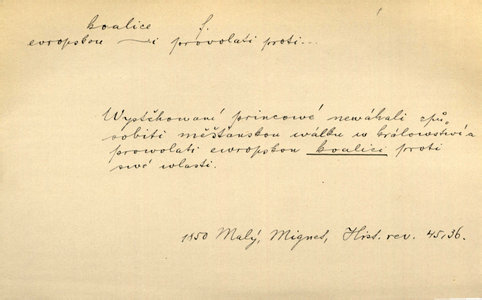 koalice f.
evropskou ~i provolati proti...
Wystěhowaní princowé newáhali způ-
sobiti měšťanskou wálku w králowstwí a
prowolati ewropskou koalici proti
swé wlasti.
1850 Malý, Mignet, Hist. rev. 45, 36.